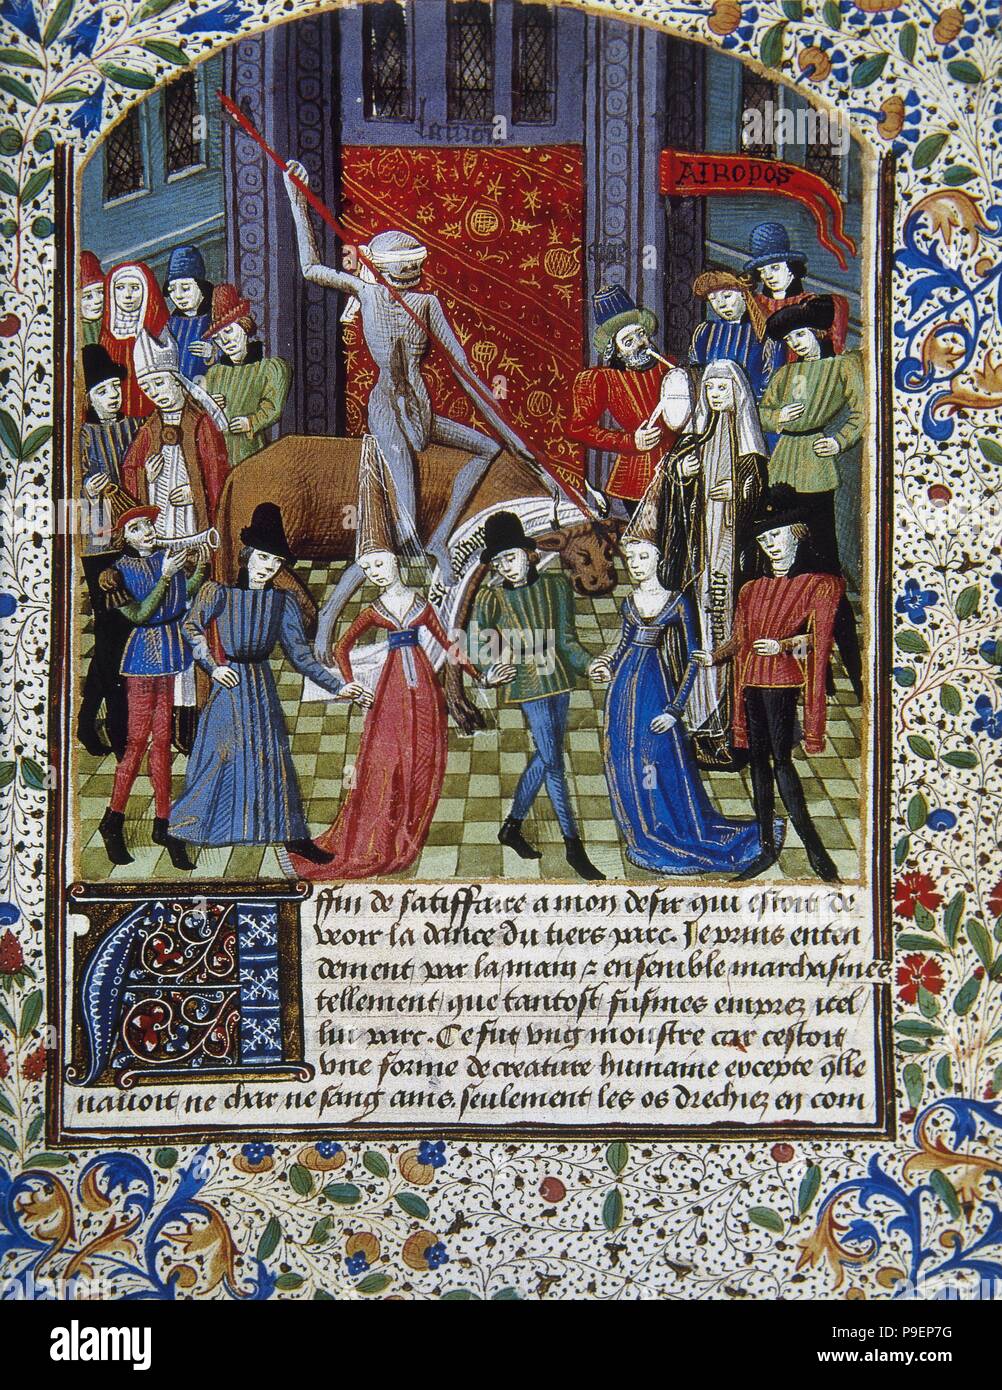 ATROPOS
Affin de satiffaire a mon desir qui estoit de
veoir la dance du tiers parc. Je prins enten
dement par la main & ensemble marchasmes
tellement que tantost fusmes emprez icel
lui parc. Ce fut vng monstre car cestoit
vne forme de creature humaine excepte q'lle
nauoit ne char ne sang ains seulement les os drechiez en com
alamy
Image ID: P9EP7G
www.alamy.com